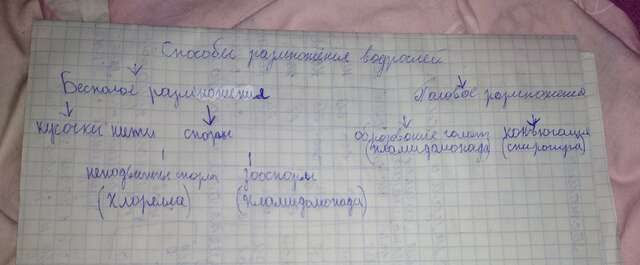 Способы размножения водорослей
Бесполое размножения Половое размножения
кусочки нити споры образование гамет конъюгация
(хламидомонада) (спирогира)
неподвижные споры зооспоры
(хлорелла) (хламидомонада)